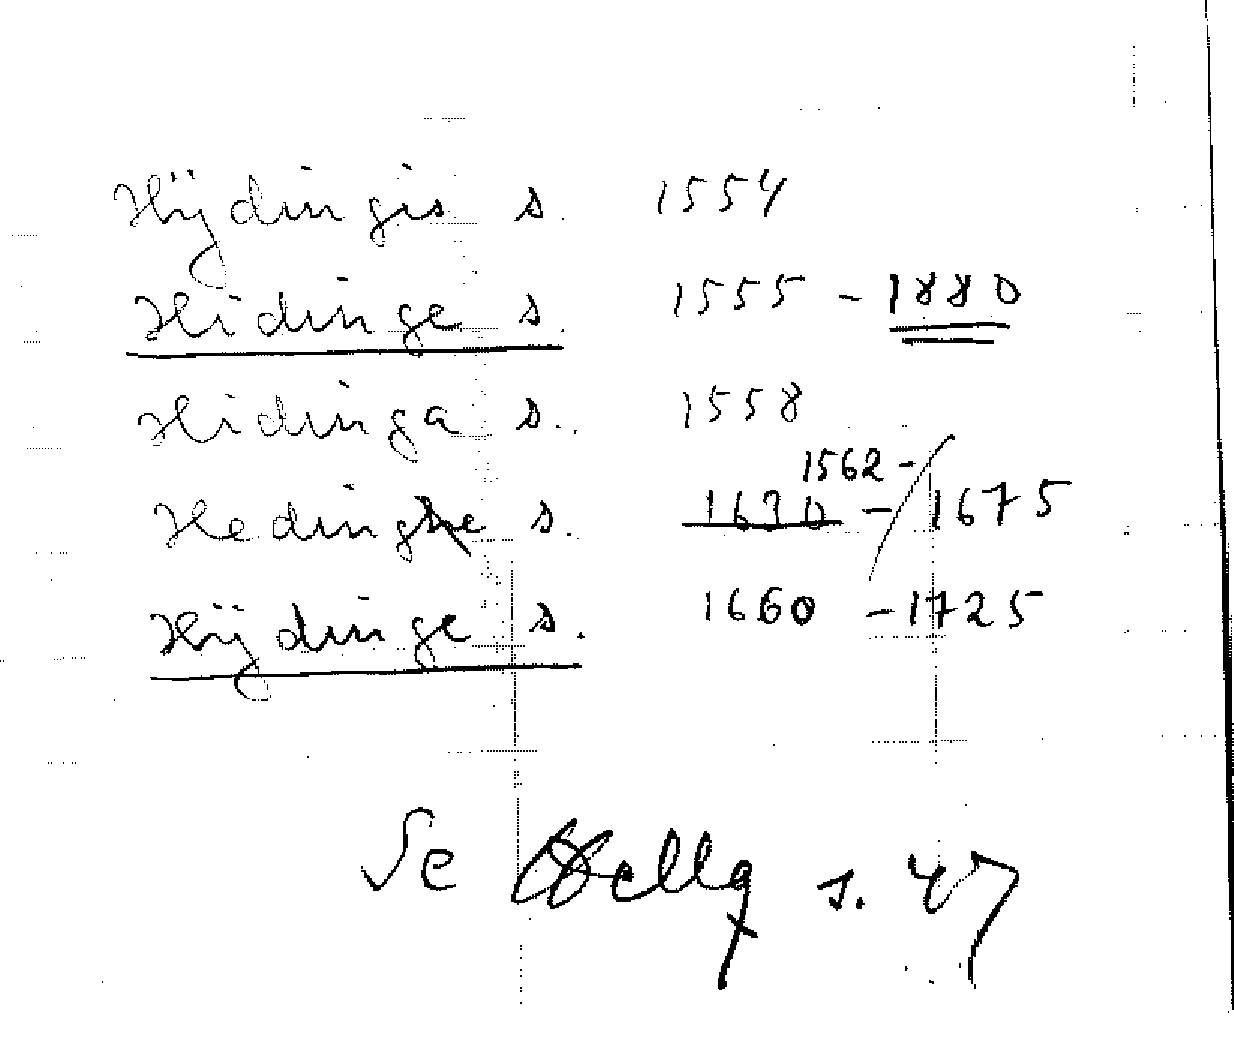 Hÿdingis s. 1554
Hidinge s. 1555 - 1880
Hidinga s. 1558
1562 -
Hedinghe s. 1630 - / 1675
Hÿdinge s. 1660 - 1725
Se Hellq s. 47